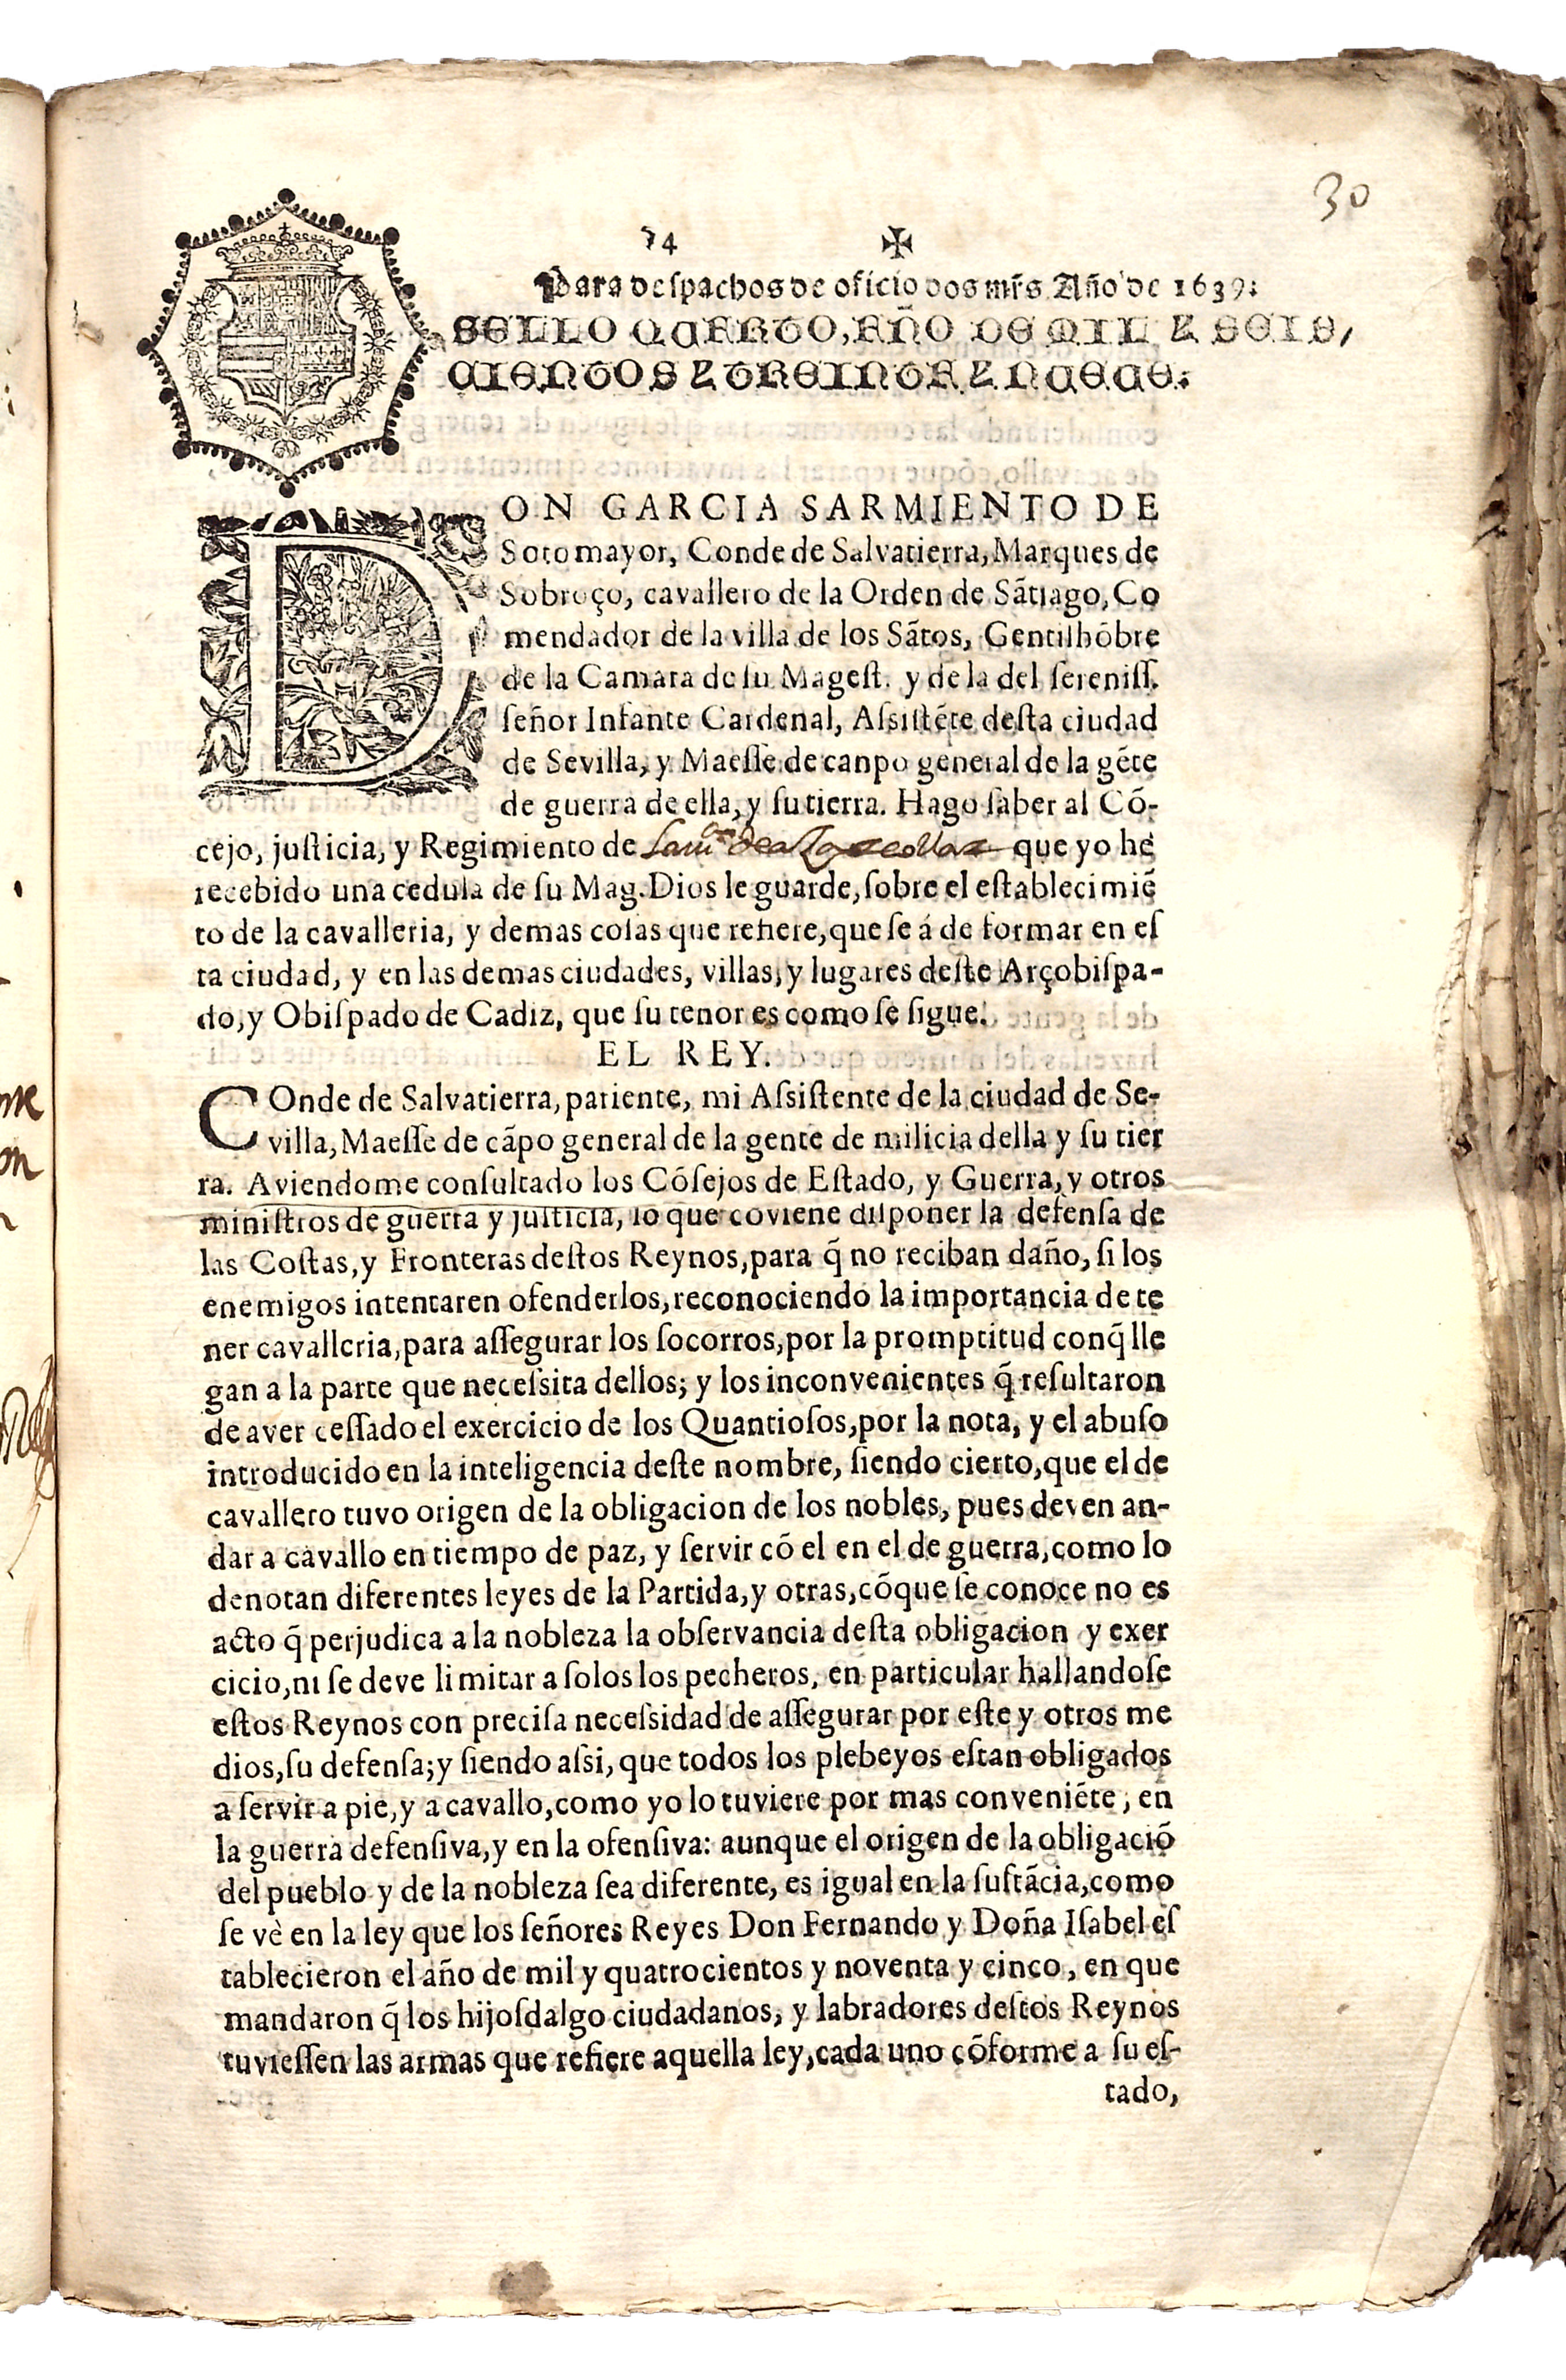 30
74 ✠
Para despachos de oficio dos mrs Año de 1639:
SELLO QVARTO, AÑO DE MIL Z SEIS,
CIENTOS Z TREINTA Z NVEVE.
DON GARCIA SARMIENTO DE
Sotomayor, Conde de Salvatierra, Marques de
Sobroço, cavallero de la Orden de Sãtiago, Co
mendador de la villa de los Sãtos, Gentilhõbre
de la Camara de su Magest. y de la del sereniss.
señor Infante Cardenal, Assistẽte desta ciudad
de Sevilla, y Maesse de canpo general de la gẽte
de guerra de ella, y su tierra. Hago saber al Cõ-
cejo, justicia, y Regimiento de que yo he
recebido una cedula de su Mag. Dios le guarde, sobre el establecimiẽ
to de la cavalleria, y demas cosas que refiere, que se á de formar en es
ta ciudad, y en las demas ciudades, villas, y lugares deste Arçobispa-
do, y Obispado de Cadiz, que su tenor es como se sigue.
EL REY.
COnde de Salvatierra, pariente, mi Assistente de la ciudad de Se-
villa, Maesse de cãpo general de la gente de milicia della y su tier
ra. Aviendome consultado los Cõsejos de Estado, y Guerra, y otros
ministros de guerra y justicia, lo que coviene disponer la defensa de
las Costas, y Fronteras destos Reynos, para q̃ no reciban daño, si los
enemigos intentaren ofenderlos, reconociendo la importancia de te
ner cavalleria, para assegurar los socorros, por la promptitud conq̃ lle
gan a la parte que necessita dellos; y los inconvenientes q̃ resultaron
de aver cessado el exercicio de los Quantiosos, por la nota, y el abuso
introducido en la inteligencia deste nombre, siendo cierto, que el de
cavallero tuvo origen de la obligacion de los nobles, pues deven an-
dar a cavallo en tiempo de paz, y servir cõ el en el de guerra, como lo
denotan diferentes leyes de la Partida, y otras, cõque se conoce no es
acto q̃ perjudica a la nobleza la observancia desta obligacion y exer
cicio, ni se deve limitar a solos los pecheros, en particular hallandose
estos Reynos con precisa necessidad de assegurar por este y otros me
dios, su defensa; y siendo assi, que todos los plebeyos estan obligados
a servir a pie, y a cavallo, como yo lo tuviere por mas conveniẽte, en
la guerra defensiva, y en la ofensiva: aunque el origen de la obligaciõ
del pueblo y de la nobleza sea diferente, es igual en la sustãcia, como
se vè en la ley que los señores Reyes Don Fernando y Doña Isabel es
tablecieron el año de mil y quatrocientos y noventa y cinco, en que
mandaron q̃ los hijosdalgo ciudadanos, y labradores destos Reynos
tuviessen las armas que refiere aquella ley, cada uno cõforme a su es-
tado,